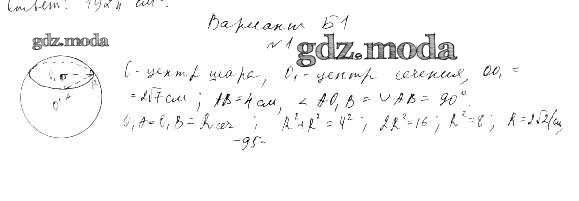 Ответ: 192π см².
Вариант Б1
gdz.moda
№1 gdz.moda
O - центр шара, O₁ - центр сечения, OO₁ =
= 2√7 см; AB = 4 см, ∠AO₁B = ∪AB = 90°
O₁A = O₁B = Rсеч; R² + R² = 4²; 2R² = 16; R² = 8; R = 2√2 (см)
-95-